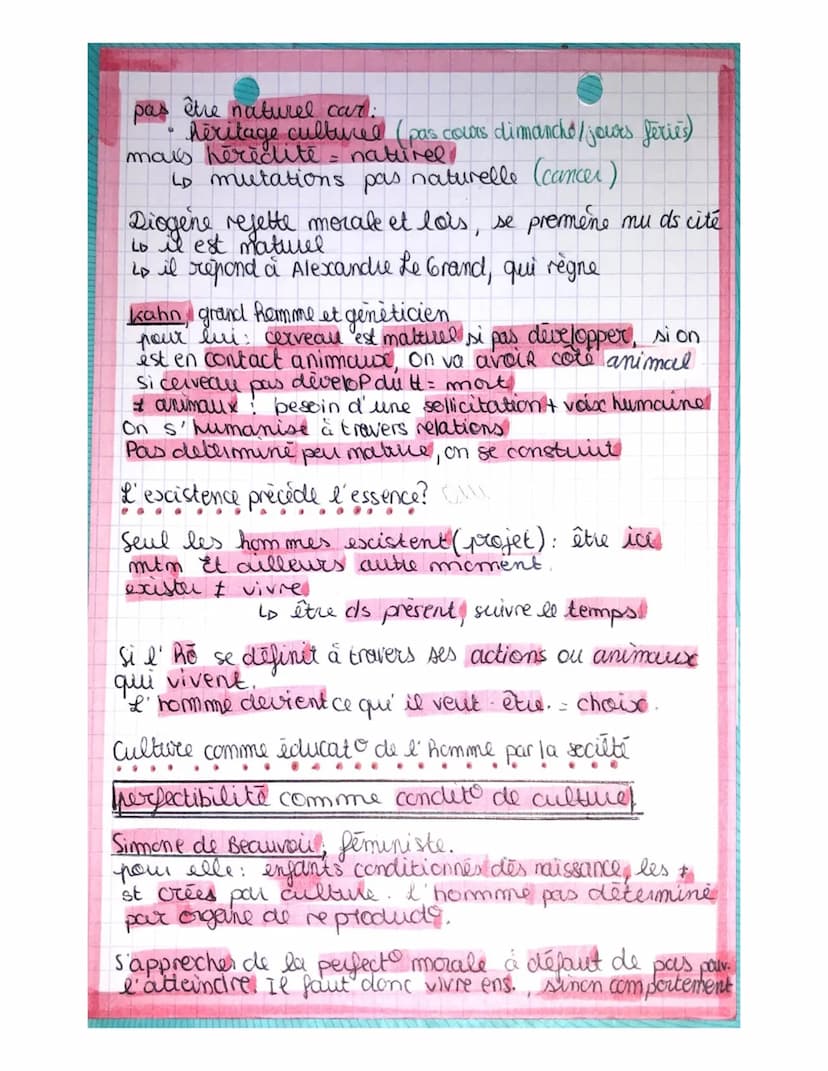 pas être naturel car :
· héritage culturel (pas cours dimanche/jours fériés)
mais hérédité = naturel
↳ mutations pas naturelle (cancer)
Diogène rejette morale et lois, se premène nu ds cité
↳ il est naturel
↳ il répond à Alexandre Le Grand, qui règne
Kahn, grand homme et généticien
pour lui : cerveau est naturel si pas développer, si on
est en contact animaux, on va avoir coté animal
si cerveau pas dévelop du tt = mort
≠ animaux : besoin d'une sollicitation + voix humaine
On s'humanise à travers relations
Pas déterminé peu nature, on se construit
L'existence précède l'essence?
Seul les hommes existent (projet) : être ici
mtm et ailleurs autre moment.
exister ≠ vivre
↳ être ds présent, suivre le temps
Si l'hô se définit à travers ses actions ou animaux
qui vivent.
L'homme devient ce qu'il veut être. = choix.
Culture comme éducato de l'homme par la société
perfectibilité comme condito de culture
Simone de Beauvoir, féministe.
pour elle : enfants conditionnés dès naissance, les ≠
st crées par culture. l'homme pas déterminé
par organe de reproducto.
S'approcher de la perfecto morale à défaut de pas pouv.
l'atteindre. Il faut donc vivre ens., sinon comportement